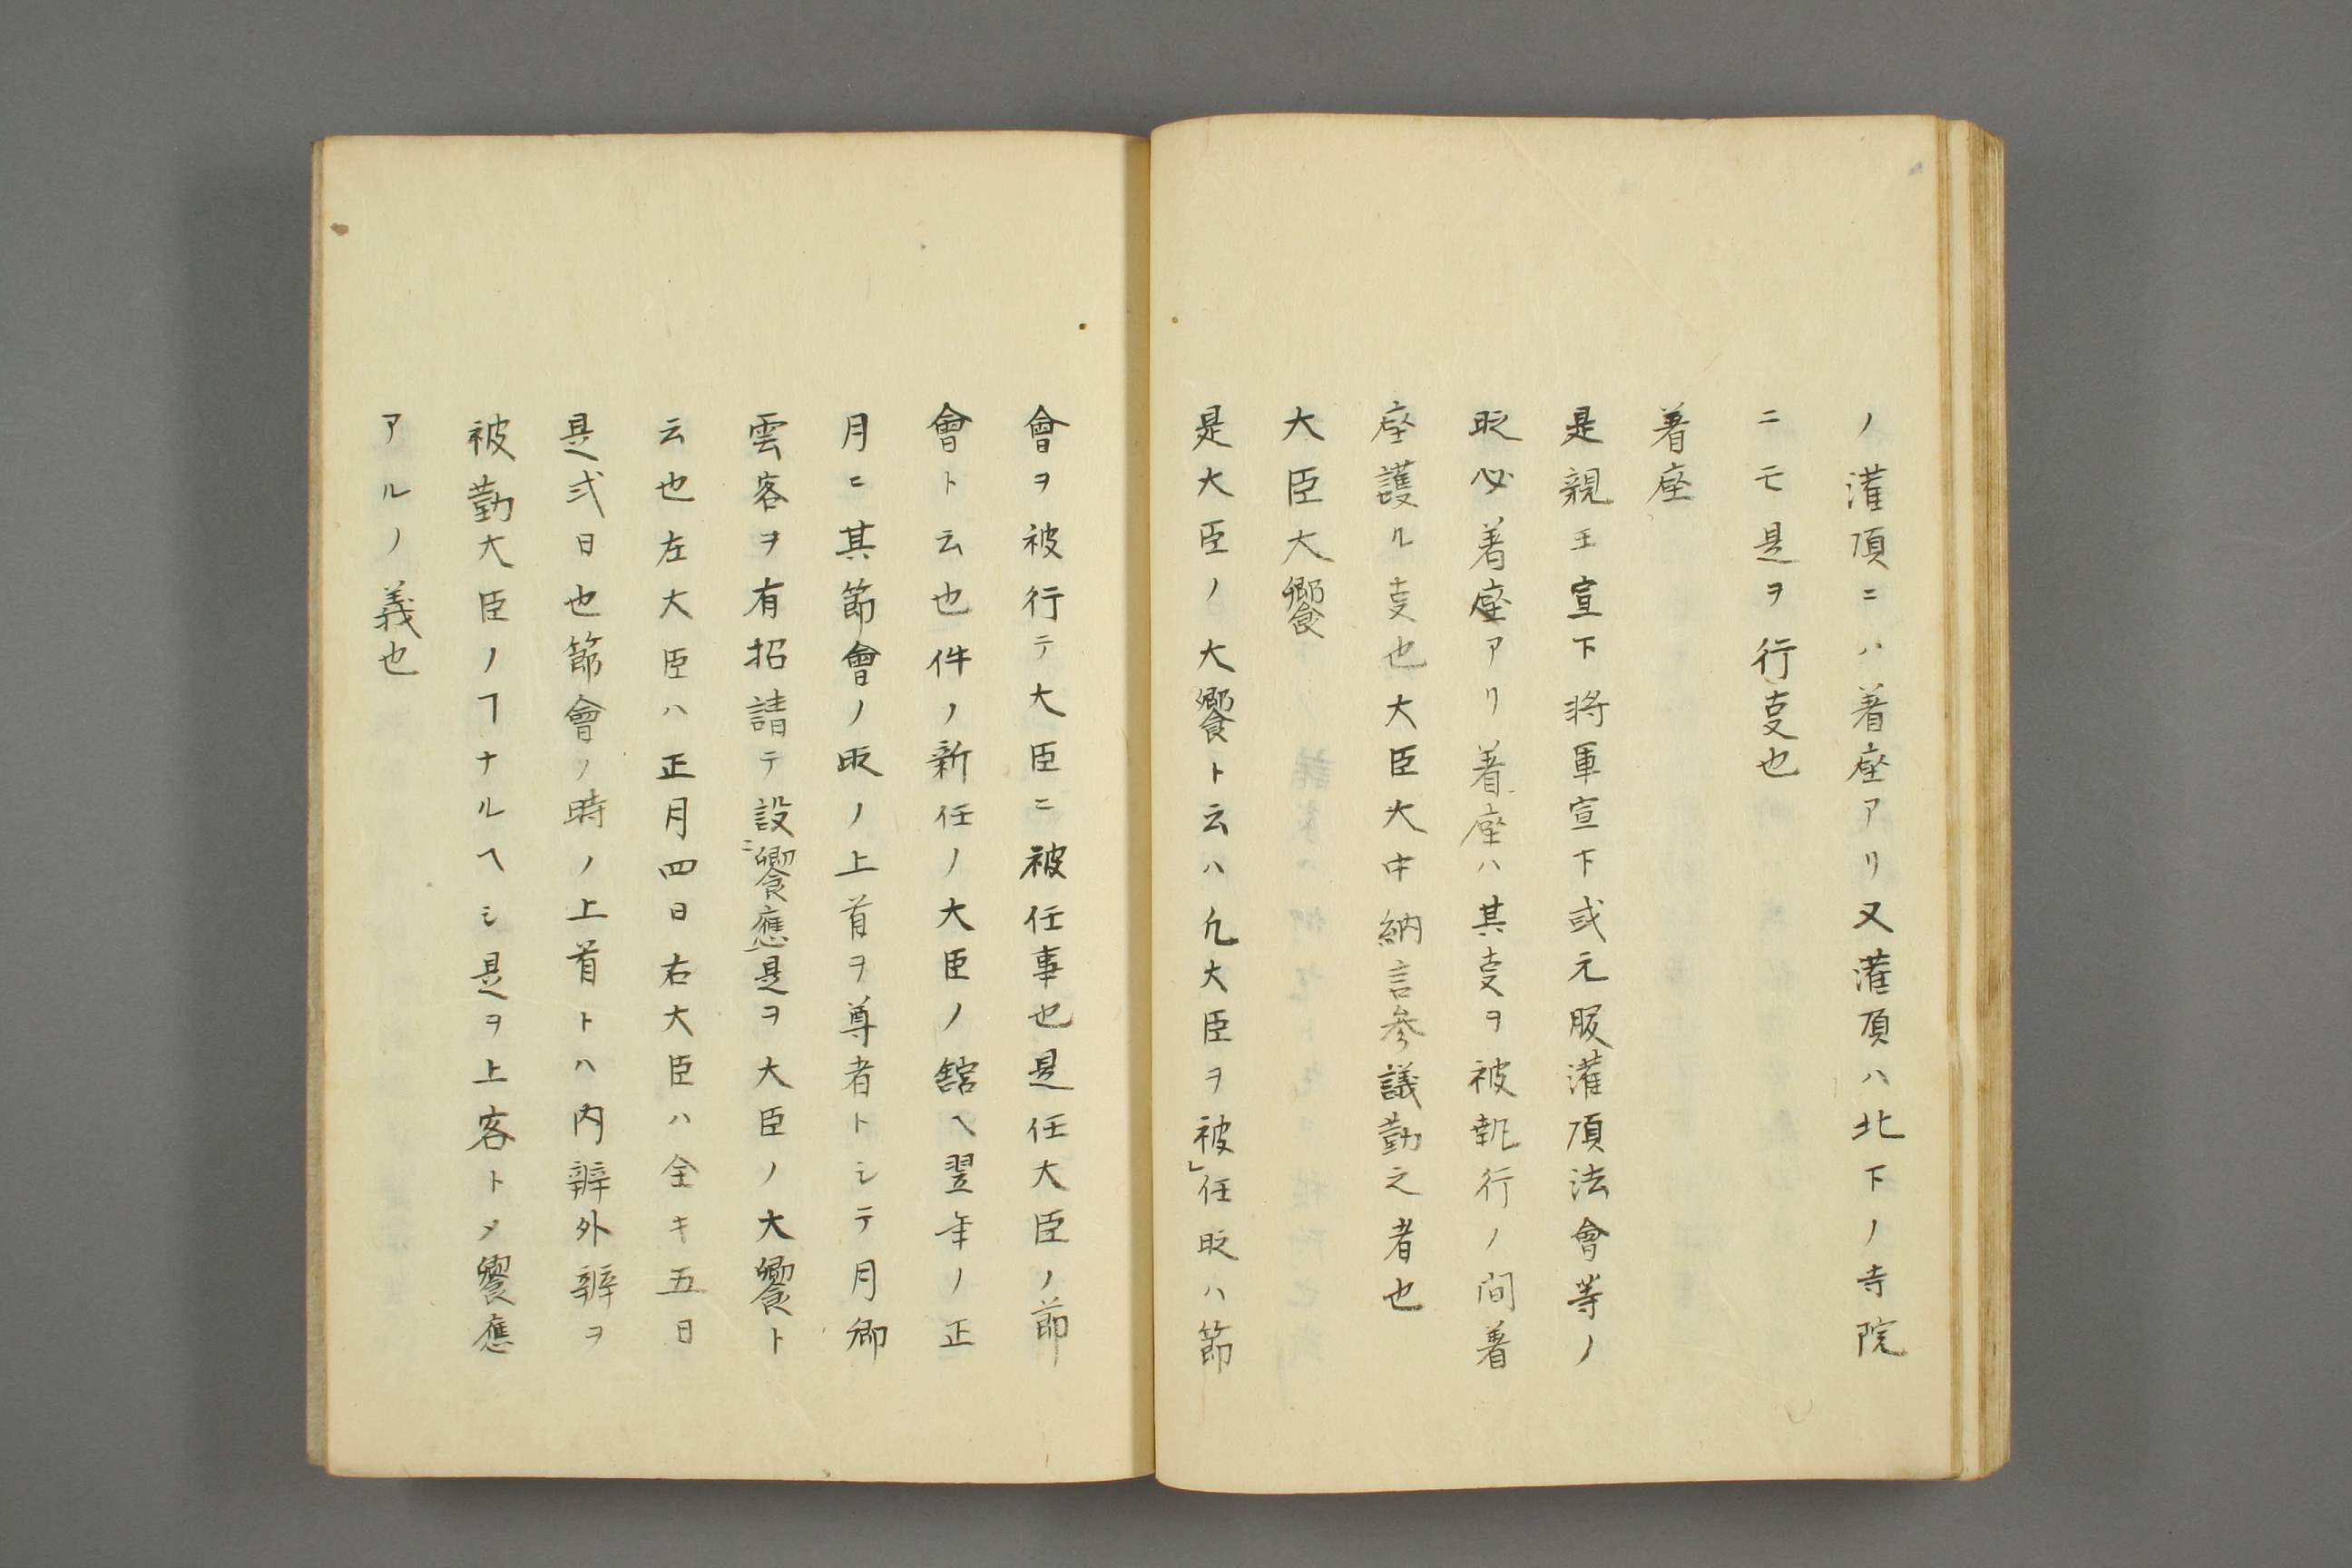 ノ灌頂ニハ着座アリ又灌頂ハ北下ノ寺院
ニモ是ヲ行叓也
着座
是親王宣下将軍宣下或元服灌頂法會等ノ
旼必着座アリ着座ハ其叓ヲ被執行ノ間着
座護ル叓也大臣大中納言参議勤之者也
大臣大饗
是大臣ノ大饗ト云ハ凢大臣ヲ被レ任旼ハ節
會ヲ被行テ大臣ニ被任事也是任大臣ノ節
會ト云也件ノ新任ノ大臣ノ舘ヘ翌年ノ正
月ニ其節會ノ旼ノ上首ヲ尊者トシテ月卿
雲客ヲ有招請テ設ニ饗應一是ヲ大臣ノ大饗ト
云也左大臣ハ正月四日右大臣ハ仝キ五日
是式日也節會ノ時ノ上首トハ内辨外辨ヲ
被勤大臣ノヿナルヘシ是ヲ上客トメ饗應
アルノ義也